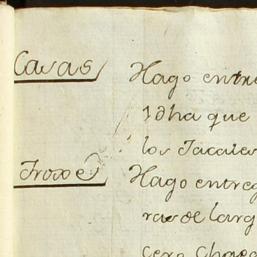 Casas Hago entre
Idha que
los Jacales
Troxe Hago entreg
ras de larg
cero Chapa